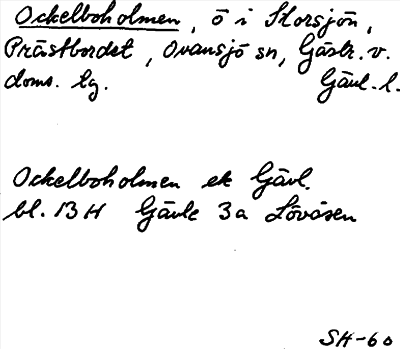 Ockelboholmen, ö i Storsjön,
Prästbordet, Ovansjö sn, Gästr. v.
doms. lg. Gävl. l.
Ockelboholmen ek Gävl.
bl. 13 H Gävle 3a Lövåsen
SH-60